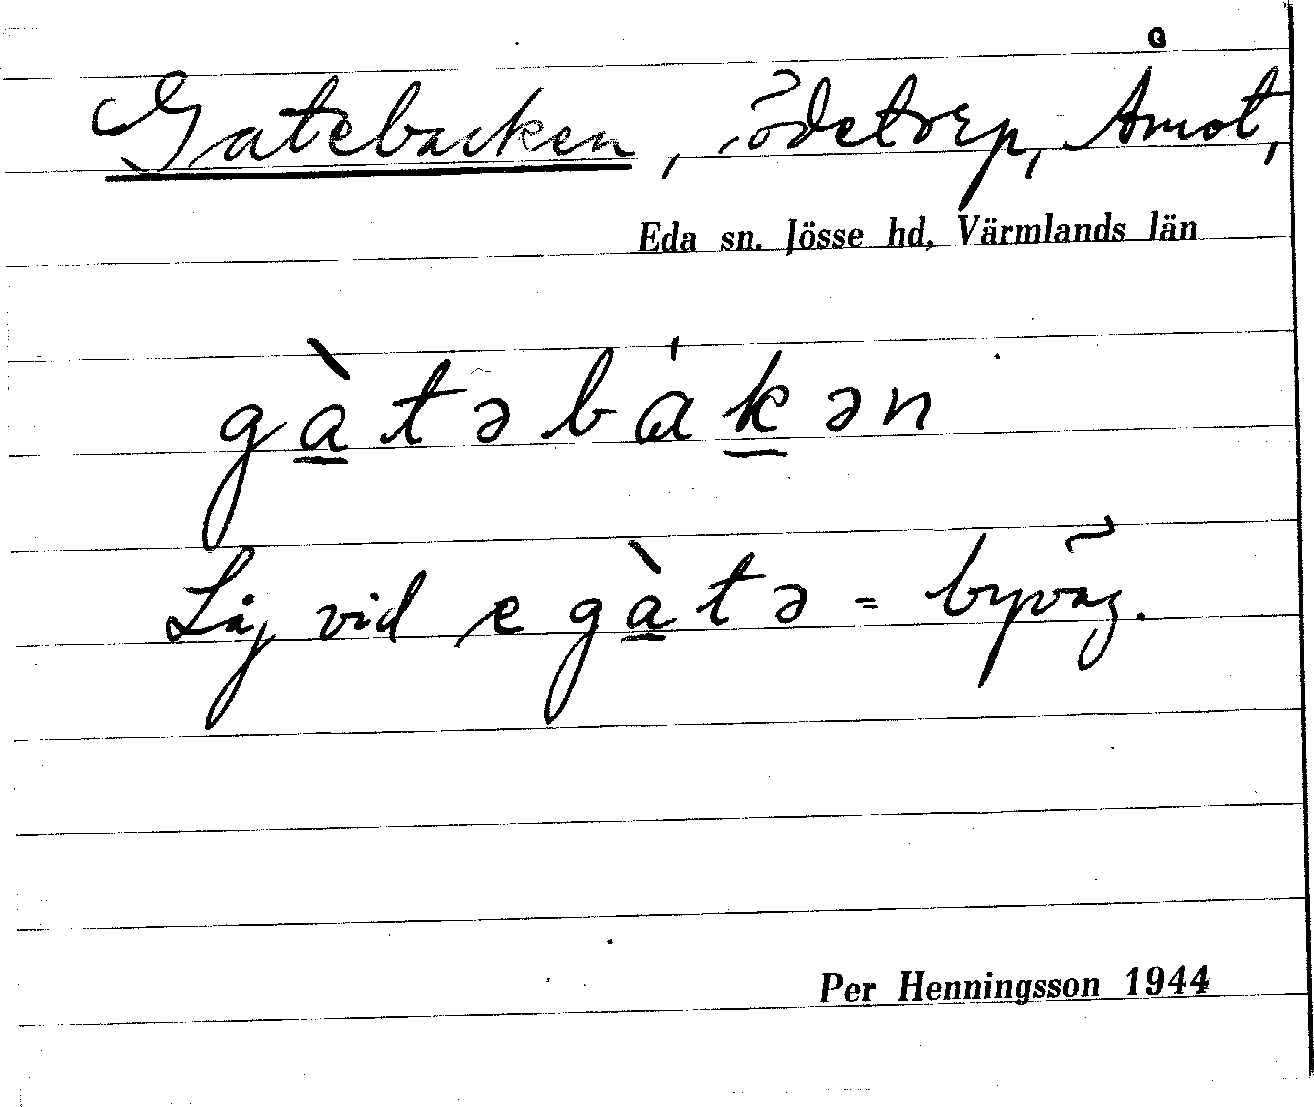 Gatebacken, ödetorp, Åmot,
Eda sn. Jösse hd, Värmlands län
gàtəbákən
Låg vid e gàtə = byväg.
Per Henningsson 1944